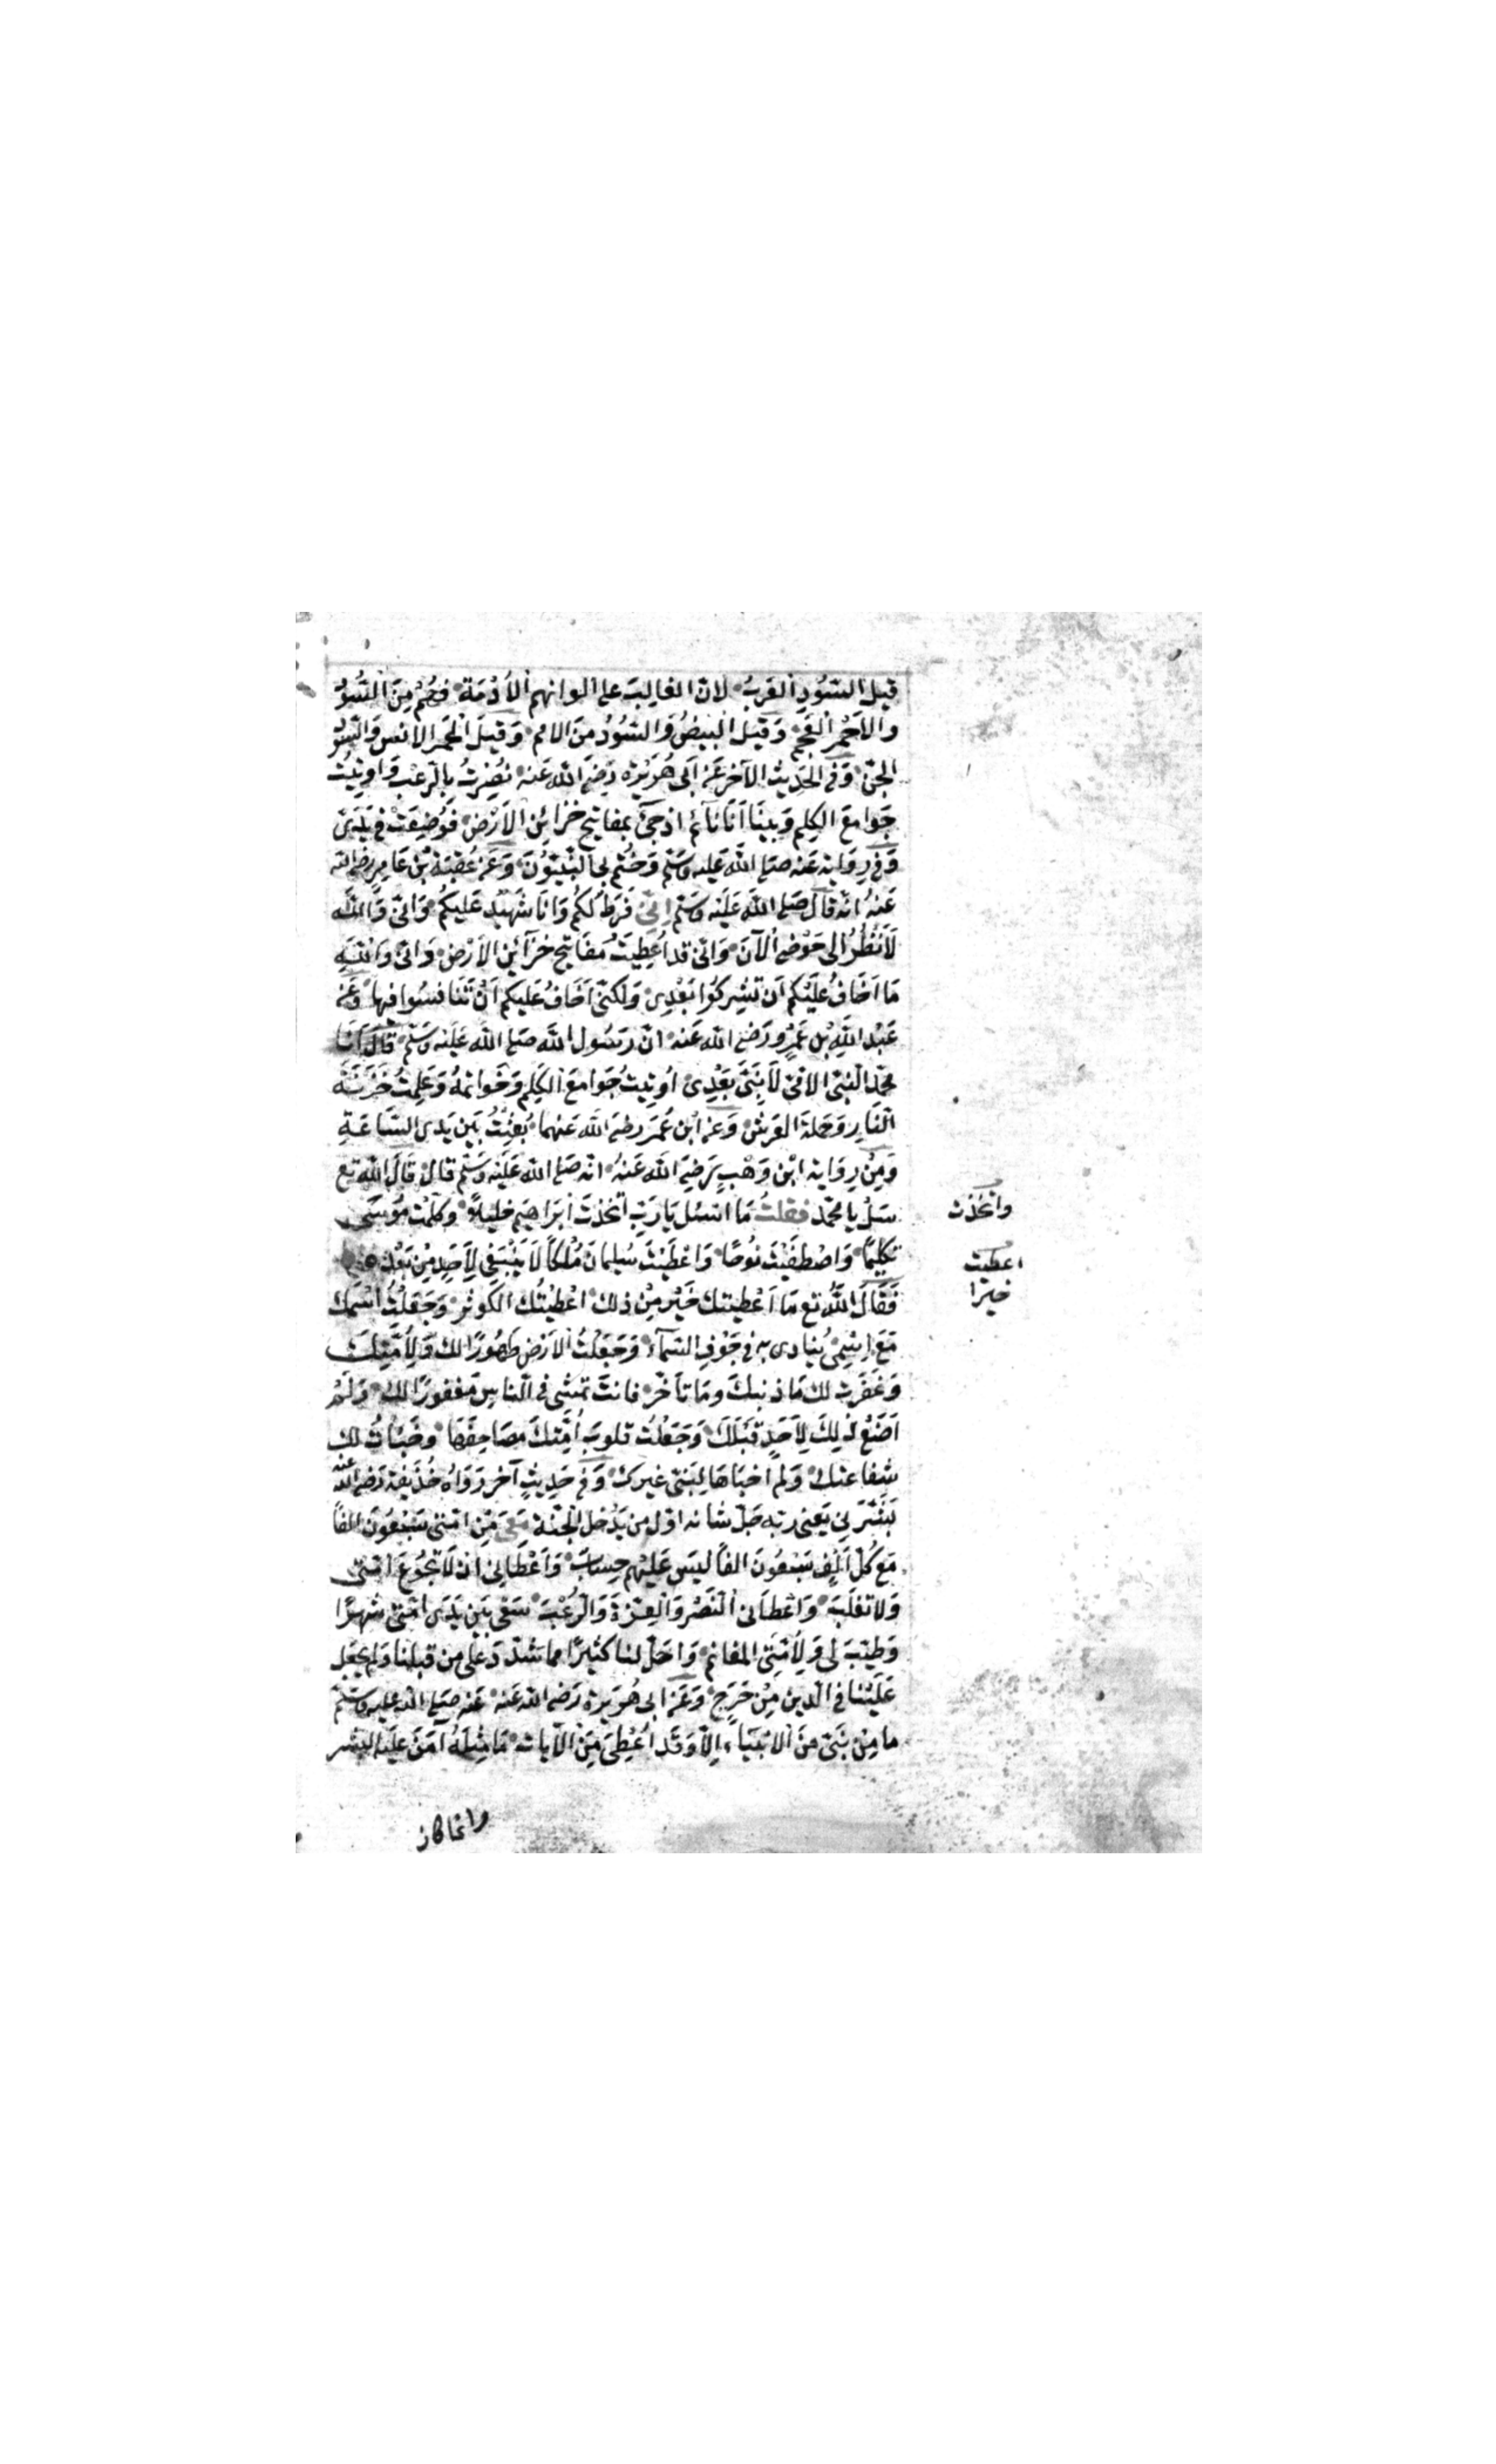 قيل السُّودِ العَرَبُ لانّ الغالِبَ على الوانهم الأُدْمَة فَهُمْ مِنَ السُّودِ
والاَحْمر العَجم وَقيل البيضُ وَالسُّوُدُ مِنَ الامم وَقيلَ الحُمر الانس وَالسود
الجنّ وَفى الحَديث الآخر عَن اَبى هُرَيْرَة رَضىَ اللّه عَنه نُصِرْتُ بالرّعب وَاوتيتُ
جَوَامعَ الكِلِم وَبينَا اَنَا نَآئم اذ جئَ بمفاتيح خزائنِ الاَرْض فَوُضِعَتْ فِى يَدَىَّ
وَفى رِوَاية عَنه صَلى اللّه عَليه وَسَلّم وَخُتم بى النّبيّونَ وَعَن عُقبَة بْن عَامِر رضى اللّه
عَنهُ انّه قالَ صَلى اللّه عَلَيْه وَسَلّم اِنّى فَرَطٌ لَكُم وَانَا شَهيْد عَليكُم وَانّى وَاللّه
لَاَنْظُرُ الى حَوْضى الآنَ وَانّى قد اُعْطِيتُ مفَاتيح خزآئن الاَرْض وَانّى وَاللّه
مَا اَخَافُ عَلَيْكم اَن تشْرِكُوا بَعْدِى وَلكنّى اَخَافُ عَليكم اَنْ تَنَافسُوا فيها وَعَن
عَبْد اللّهِ بْن عَمْرٍو رَضى اللّه عَنه انّ رَسُول اللّه صَلى اللّه عَلَيْه وَسَلّم قالَ اَنَا
محمّد النّبىّ الامّىّ لَا نبَىَّ بَعْدِى اُوتيتُ جَوَامعَ الكَلِم وَخَواتمهُ وَعَلِمتُ خَزَنَةَ
النّارِ وَحَملَة العَرش وَعن ابْن عُمَر رضىَ اللّه عَنهما بُعِثْتُ بَين يَدى السَّاعَةِ
وَمِنْ رِوَاية ابْن وَهْبٍ رَضِىَ اللّه عَنهُ انّه صَلى اللّه عَلَيْه وَسَلّم قالَ قَالَ اللّه تع
سَلْ يا محمّد فقلتُ مَا اسئل يَا رَبّ اتّخذتَ اِبْرَاهيم خليلاً وكلّمْتَ موسَى
تكليمًا وَاصْطفَيْتَ نُوحًا وَاعْطَيْتَ سُليمانَ مُلْكًا لَا يَنْبَغِى لِأَحدٍ مِنْ بَعْدِهِ
فَقَالَ اللّه تع مَا اَعْطيتكَ خَيْر مِنْ ذلك اعْطَيْتُك الكوثر وَجَعَلْتُ اسْمَك
مَعَ اِسْمِى يُنادى به فى جَوْفِ السّمآء وَجَعَلْتُ الاَرْضَ طَهُورًا لك وَلِأُمَّتِكَ
وَغَفَرْت لك مَا ذنبكَ وما تأخّر فانتَ تمشى فى النّاسِ مغفورًا لك وَلَمْ
اَصْنَعْ ذلِكَ لِأَحَدٍ قبَلَكَ وَجَعَلْتُ قلوبَ اُمّتِكَ مصَاحِفَهَا وخَبَأتُ لك
شفاعتك وَلَمْ اخبَأهَا لِنَبىّ غيرك وَفى حَدِيثٍ آخر رَوَاهُ حُذَيفة رَضى اللّه عنه
بَشَّرَنى يَعنى رَبّه جَلّ شانه اوّل من يَدْخل الجنّة مَعِىَ مِن امّتى سَبْعُونَ الفًا
مَع كُلّ اَلْفٍ سَبعُونَ الفًا ليسَ عَليْهم حِسَابٌ وَاَعْطَانِى اَن لَا تجُوعَ امّتى
وَلا تغلَبَ وَاعْطَانى النّصْرَ وَالعِزّةَ وَالرُّعْبَ يَسْعَى بَيْن يَدَى امّتى شَهرًا
وَطيّبَ لى وَلِأُمّتِى المغانم وَاحَلّ لنا كَثيرًا مما شدّد عَلى من قبلنا وَلم يجعَل
عَلَيْنا فى الدّين مِنْ حَرَجٍ وَعَن ابى هُرَيرة رَضى اللّه عَنه عَنه صَلى اللّه عَليه وَسَلّم
ما مِنْ نبَىّ منَ الانْبيَاءِ اِلّا وَقَد اُعْطِىَ مِنَ الآيات مَا مثِلهُ آمَنَ عَلَيه البَشر
واتّخذت
اعطيت
خيرًا
وانّما كان